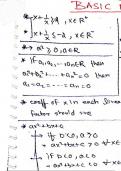 BASIC
* x + 1/x ≥ 2, x ∈ R⁺
* x + 1/x ≤ -2, x ∈ R⁻
* a² ≥ 0, a ∈ R
* If a₁, a₂, ... an ∈ R then
a₁² + a₂² + ... + an² = 0 then
a₁ = a₂ = ... = an = 0
* coeff of x in each linear
factor should +ve
* ax² + bx + c
→ If D < 0, a > 0
ax² + bx + c > 0 ∀ x ∈ R
→ If D < 0, a < 0
ax² + bx + c < 0 ∀ x ∈